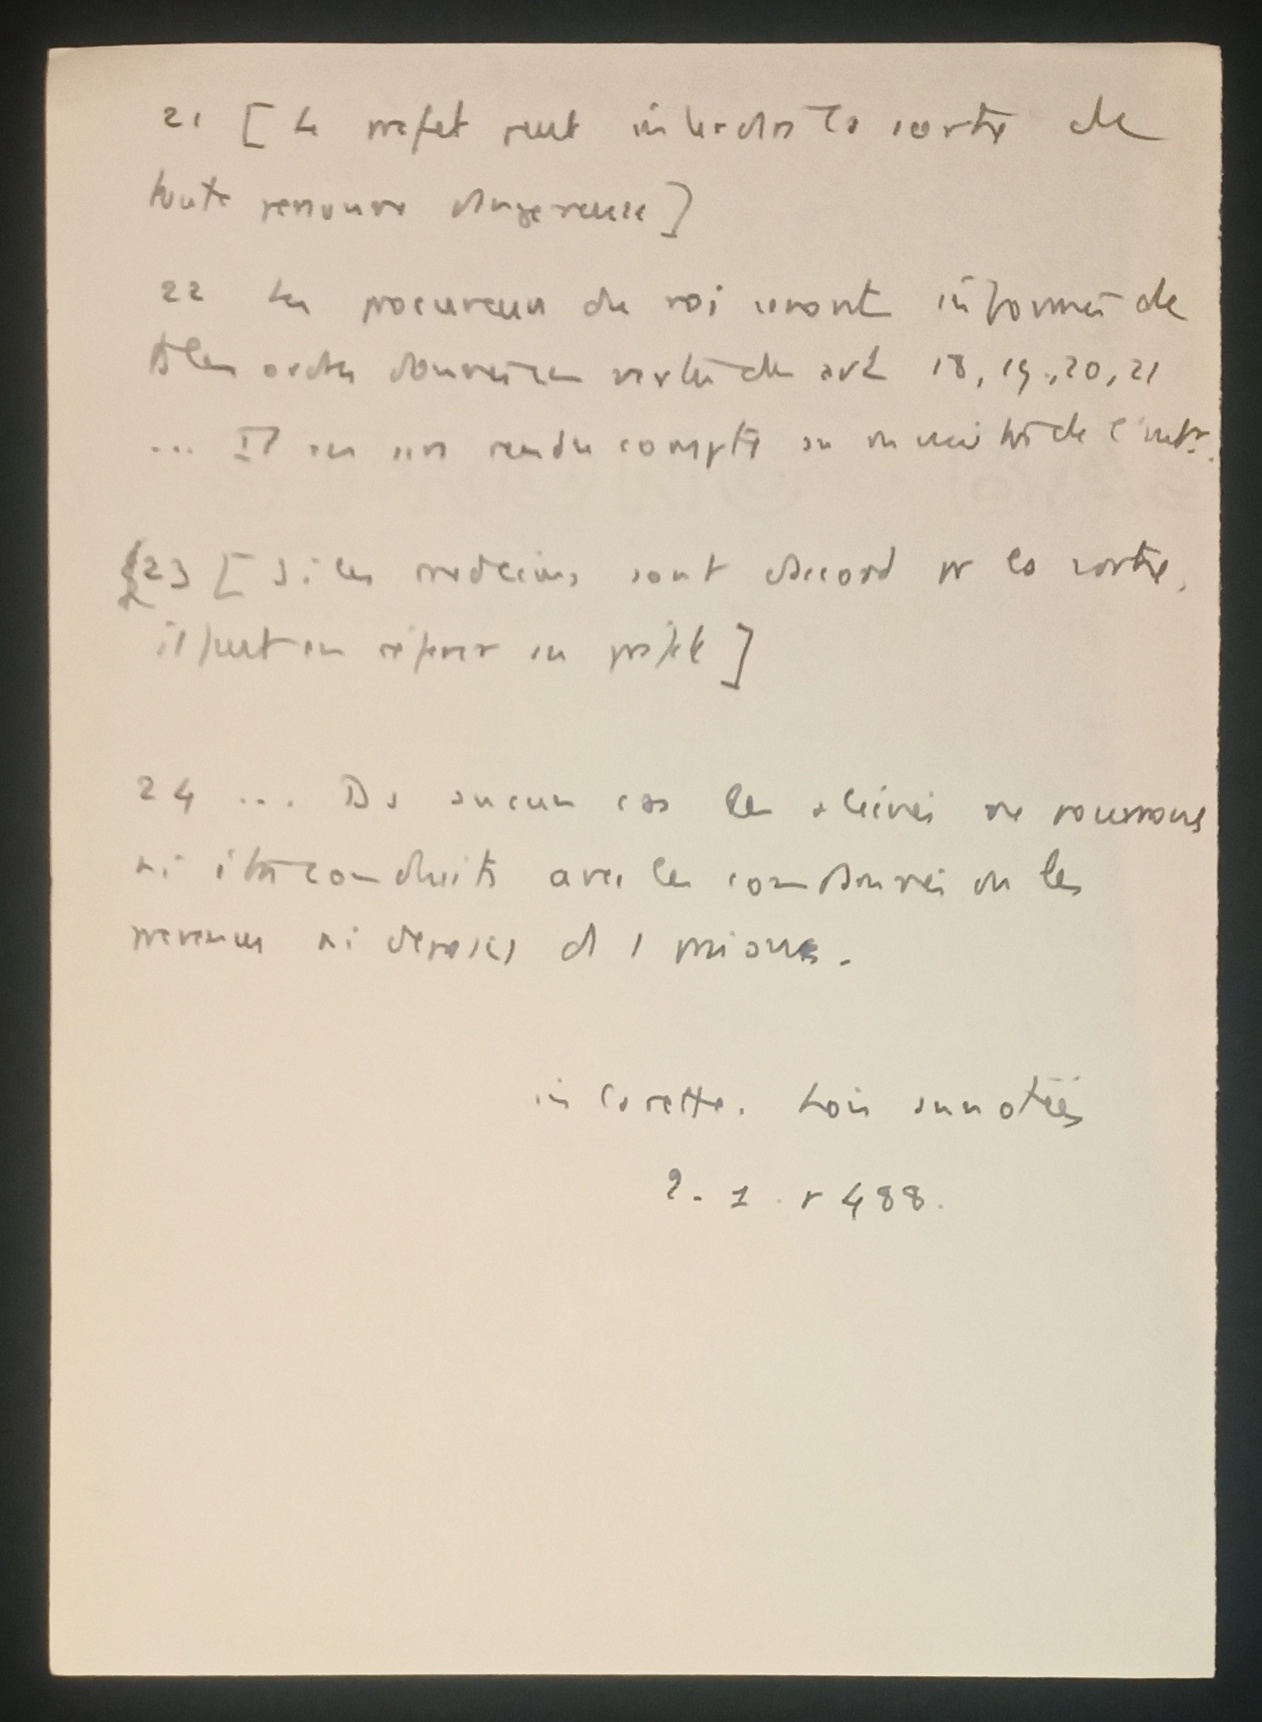 21 [ Le préfet peut interdire la sortie de
toute personne dangereuse ]
22 Les procureurs du roi seront informés de
ts les ordres donnés en vertu des art 18, 19, 20, 21
... Il en sera rendu compte au ministre de l'intr.
23 [ Si les médecins sont d'accord pr la sortie,
il faut en référer au préfet ]
24 ... Ds aucun cas les aliénés ne pourront
ni être conduits avec les condamnés ou les
prévenus ni déposés ds 1 prison.
in Carette. Lois annotées
2. 1. p 488.